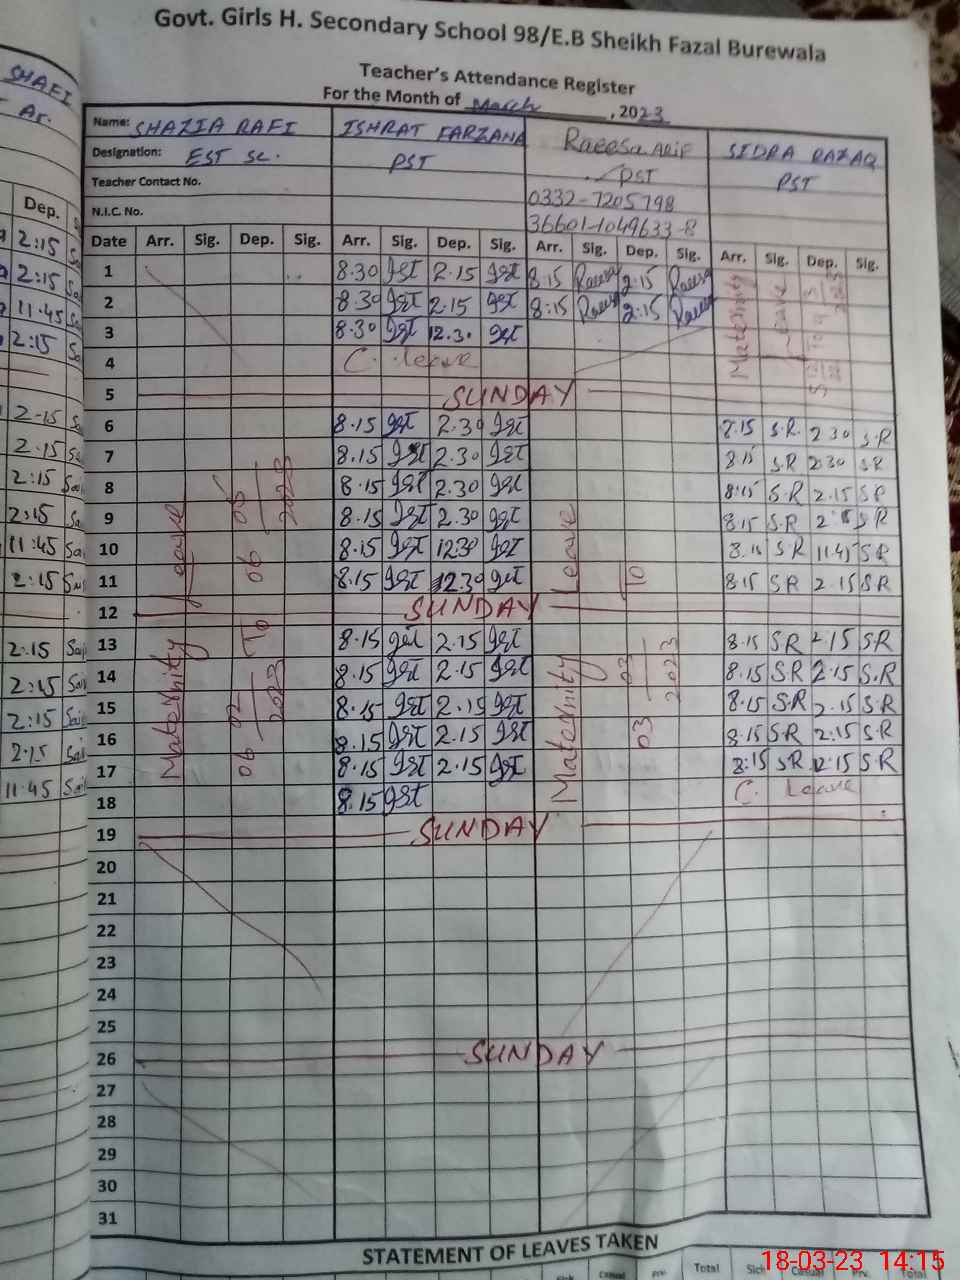 Govt. Girls H. Secondary School 98/E.B Sheikh Fazal Burewala
Teacher's Attendance Register
For the Month of March, 2023
Name: SHAZIA RAFI ISHRAT FARZANA Raeesa Arif SIDRA RAZAQ
Designation: EST SC. PST PST PST
Teacher Contact No. 0332-7205798
N.I.C. No. 36601-1049633-8
Date Arr. Sig. Dep. Sig. Arr. Sig. Dep. Sig. Arr. Sig. Dep. Sig. Arr. Sig. Dep. Sig.
1 8.30 Ist 2.15 Ist 8.15 Raeesa 2.15 Raeesa
2 8.30 Ist 2.15 Ist 8:15 Raeesa 2:15 Raeesa
3 8.30 Ist 12.30 Ist
4 C. leave
Maternity Leave
5 SUNDAY
6 8.15 Ist 2.30 Ist 8.15 S.R. 2 30 S.R
7 8.15 Ist 2.30 Ist 8.15 S.R 2:30 S.R
8 8.15 Ist 2.30 Ist 8:15 S.R 2.15 S R
9 8.15 Ist 2.30 Ist 8.15 S.R 2:15 S R
10 8.15 Ist 12.30 Ist 8.15 S R 11.45 S R
11 8.15 Ist 12.30 Ist 8.15 S R 2.15 S R
12 SUNDAY
13 8.15 Ist 2.15 Ist 8.15 S R 2.15 S.R
14 8.15 Ist 2.15 Ist 8.15 S R 2.15 S.R
15 8.15 Ist 2.15 Ist 8.15 S.R 2.15 S.R
16 8.15 Ist 2.15 Ist 8.15 S.R 2:15 S.R
17 8.15 Ist 2.15 Ist 8:15 S R 2:15 S.R
18 8.15 Ist C. Leave
Maternity Leave
06 02 2023 To 06 05 2023
Maternity Leave
03 03 2023 To
19 SUNDAY
20
21
22
23
24
25
26 SUNDAY
27
28
29
30
31
STATEMENT OF LEAVES TAKEN
Sick Casual Prv. Total Sick Casual Prv. Total
SHAFI
Ar.
Dep.
2:15
2:15
11.45
2:15
2-15
2.15
2:15
2:15
11:45
2:15
2:15
2:15
2:15
2:15
11.45
18-03-23 14:15